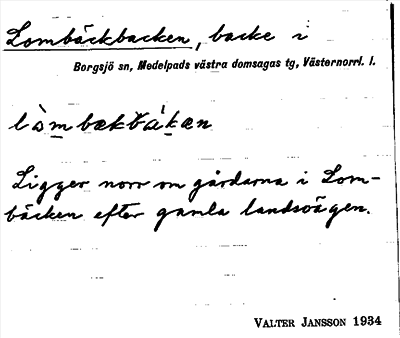 Lombäckbacken, backe i
Borgsjö sn, Medelpads västra domsagas tg, Västernorrl. l.
Ligger norr om gårdarna i Lom-
bäcken efter gamla landsvägen.
VALTER JANSSON 1934